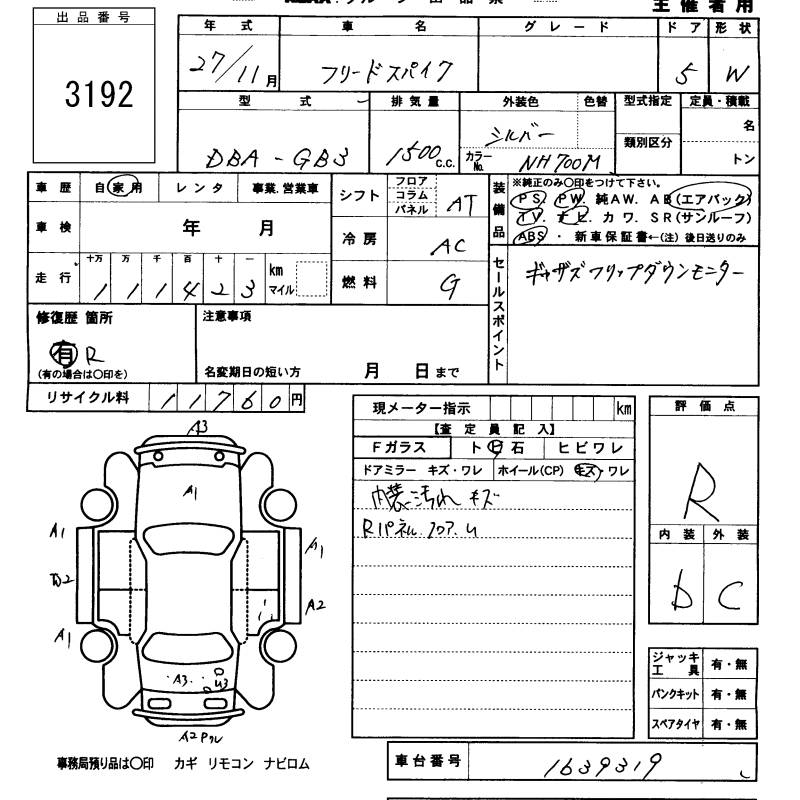 主催者用
出品番号
3192
年式 車名 グレード ドア 形状
27/11月 フリードスパイク 5 W
型式 排気量 外装色 色替 型式指定 定員・積載
DBA-GB3 1500c.c. シルバー 類別区分 名
カラーNo. NH700M トン
車歴 自家用 レンタ 事業.営業車
シフト フロア コラム パネル AT
装備品 ※純正のみ〇印をつけて下さい。
PS PW 純AW. AB(エアバック)
TV. ナビ. カワ. SR(サンルーフ)
ABS・新車保証書←(注)後日送りのみ
車検 年 月
冷房 AC
走行 十万 万 千 百 十 一
111423 km マイル
燃料 G
セールスポイント ギャザズフリップダウンモニター
修復歴 箇所
有 R
(有の場合は〇印を)
注意事項
名変期日の短い方 月 日まで
リサイクル料 11760円
現メーター指示 km
【査定員記入】
Fガラス ト ビ 石 ヒビワレ
ドアミラー キズ・ワレ ホイール(CP) キズ・ワレ
内装汚れ キズ
Rパネル.フロア.U
評価点
R
内装 外装
D C
A3
A1
A1
A1
A2
A1
A3. U3
A2
ジャッキ工具 有・無
パンクキット 有・無
スペアタイヤ 有・無
事務局預り品は〇印 カギ リモコン ナビロム
車台番号 1639319